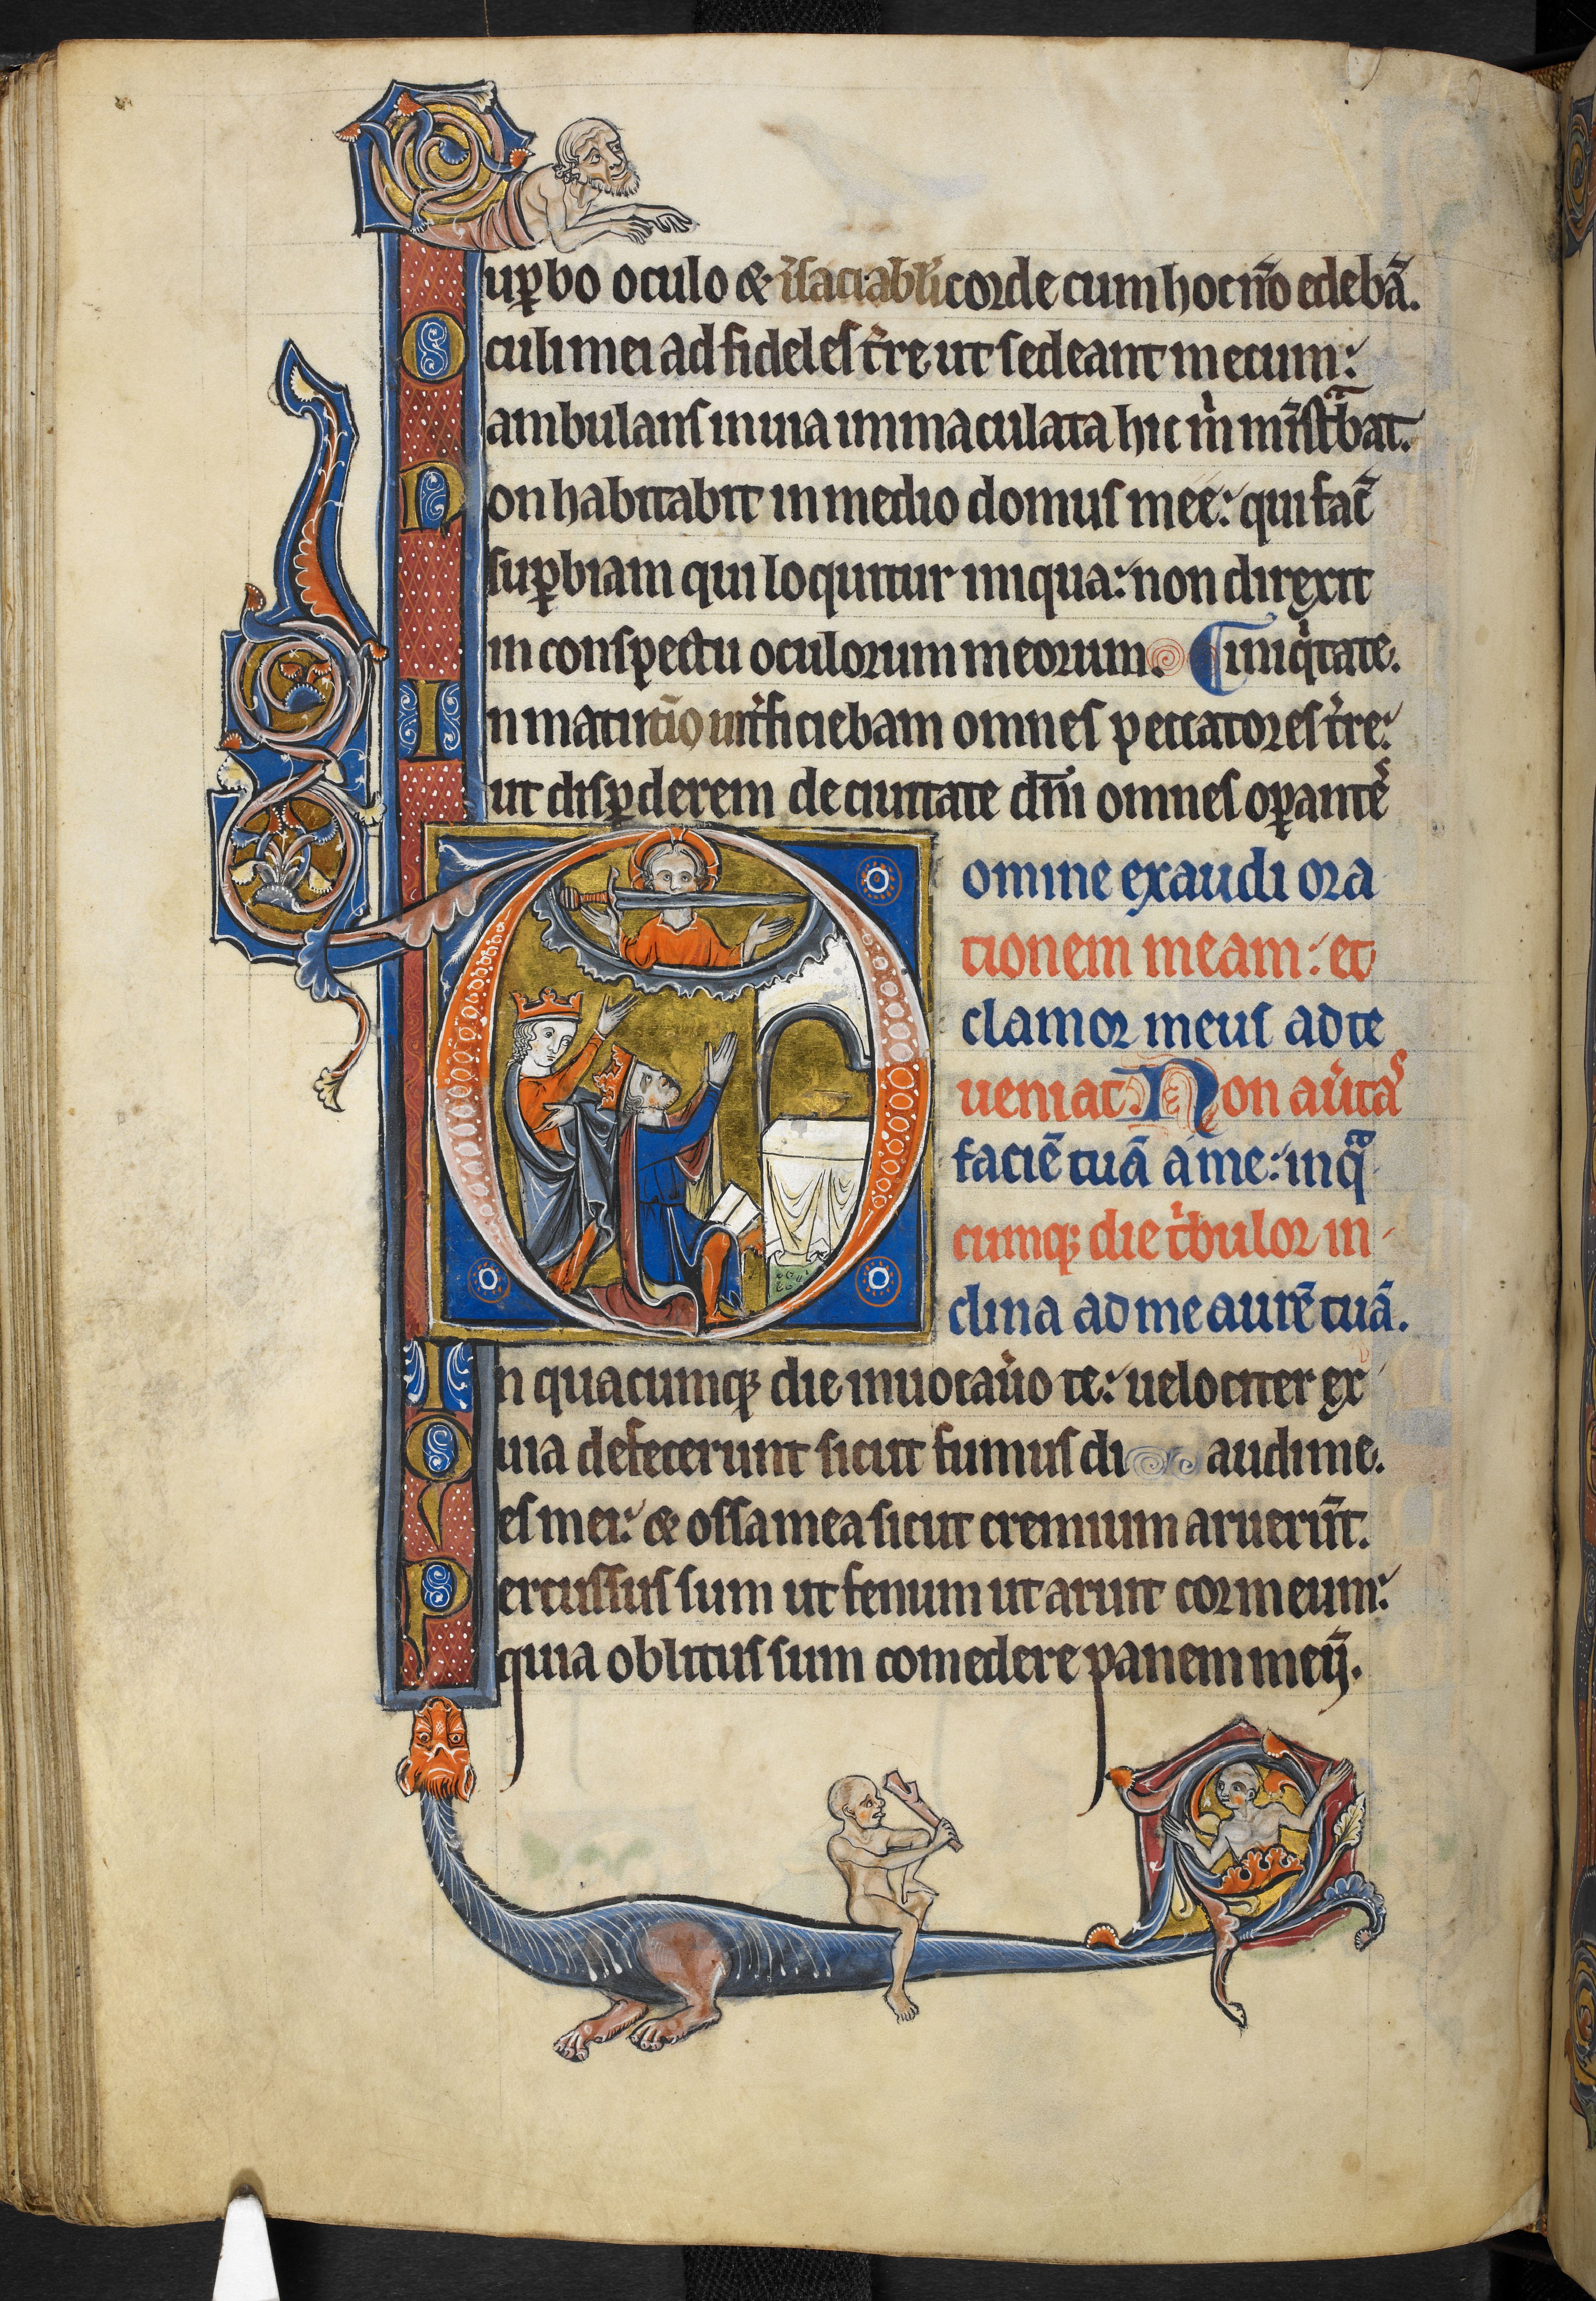 Sup̱bo oculo & ı̄saciabł'i corde cum hoc nō edebā.
Oculi mei ad fideles t̾re ut sedeant mecum:
ambulans in uia immaculata hic m̍ min̄st̾bat.
Non habitabit in medio domus meę: qui fac̄
sup̱biam qui loquitur iniqua: non direxit
in conspectu oculorum meorum. ¶ iniq̍tate.
In matutīo int̾ficiebam omnes peccatores t̾re:
ut disp̱derem de ciuitate dn̄i omnes op̱antes
Domine exaudi ora
tionem meam: et
clamor meus ad te
ueniat. Non au̾tas
faciē tuā a me: in qᵃ
cumq; die t̍bulor in
clina ad me aurē tuā.
In quacumq; die inuocau̾o te: uelociter ex
Quia defecerunt sicut fumus di audi me.
es mei: & ossa mea sicut cremium aruerūt.
Percussus sum ut fenum ut aruit cor meum:
quia oblitus sum comedere panem meū.